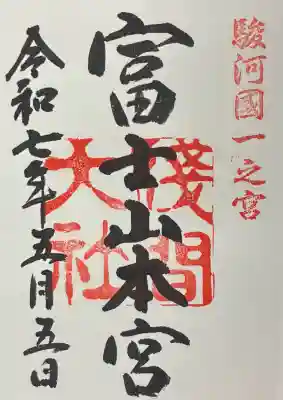 駿河國一之宮
富士山本宮
淺間大社
令和七年五月五日